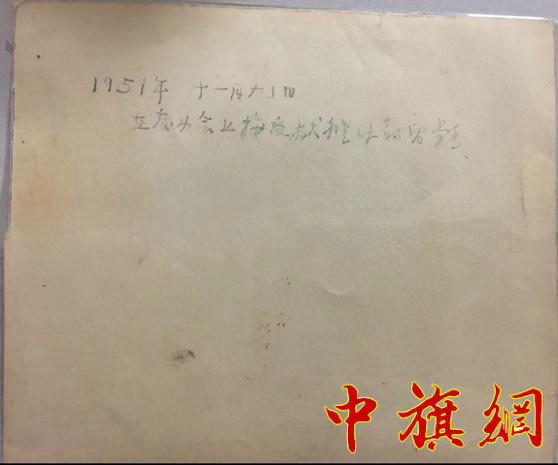 1951年 十一月九日
在庆功会上接受献旗
中旗網